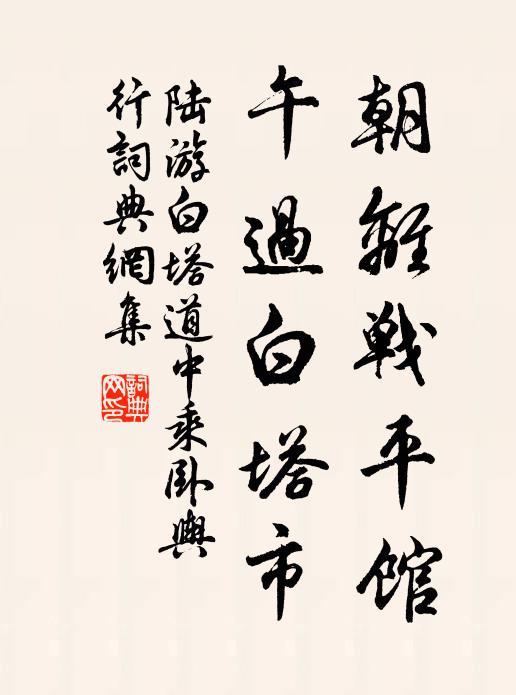 朝離戰平館
午過白塔市
陸游白塔道中乘卧輿
行詞典網集
詞典網印